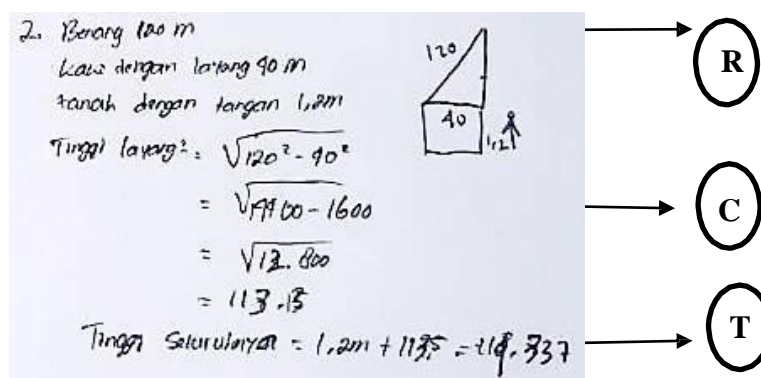 2. Benang 120 m
Kaw dengan layang 40 m
tanah dengan tangan 1,2m
Tinggi layang² = √120² - 40²
= √14400 - 1600
= √12.800
= 113.15
Tinggi Seluruhnya = 1,2m + 113,5 =
120
40
1,2
R
C
T